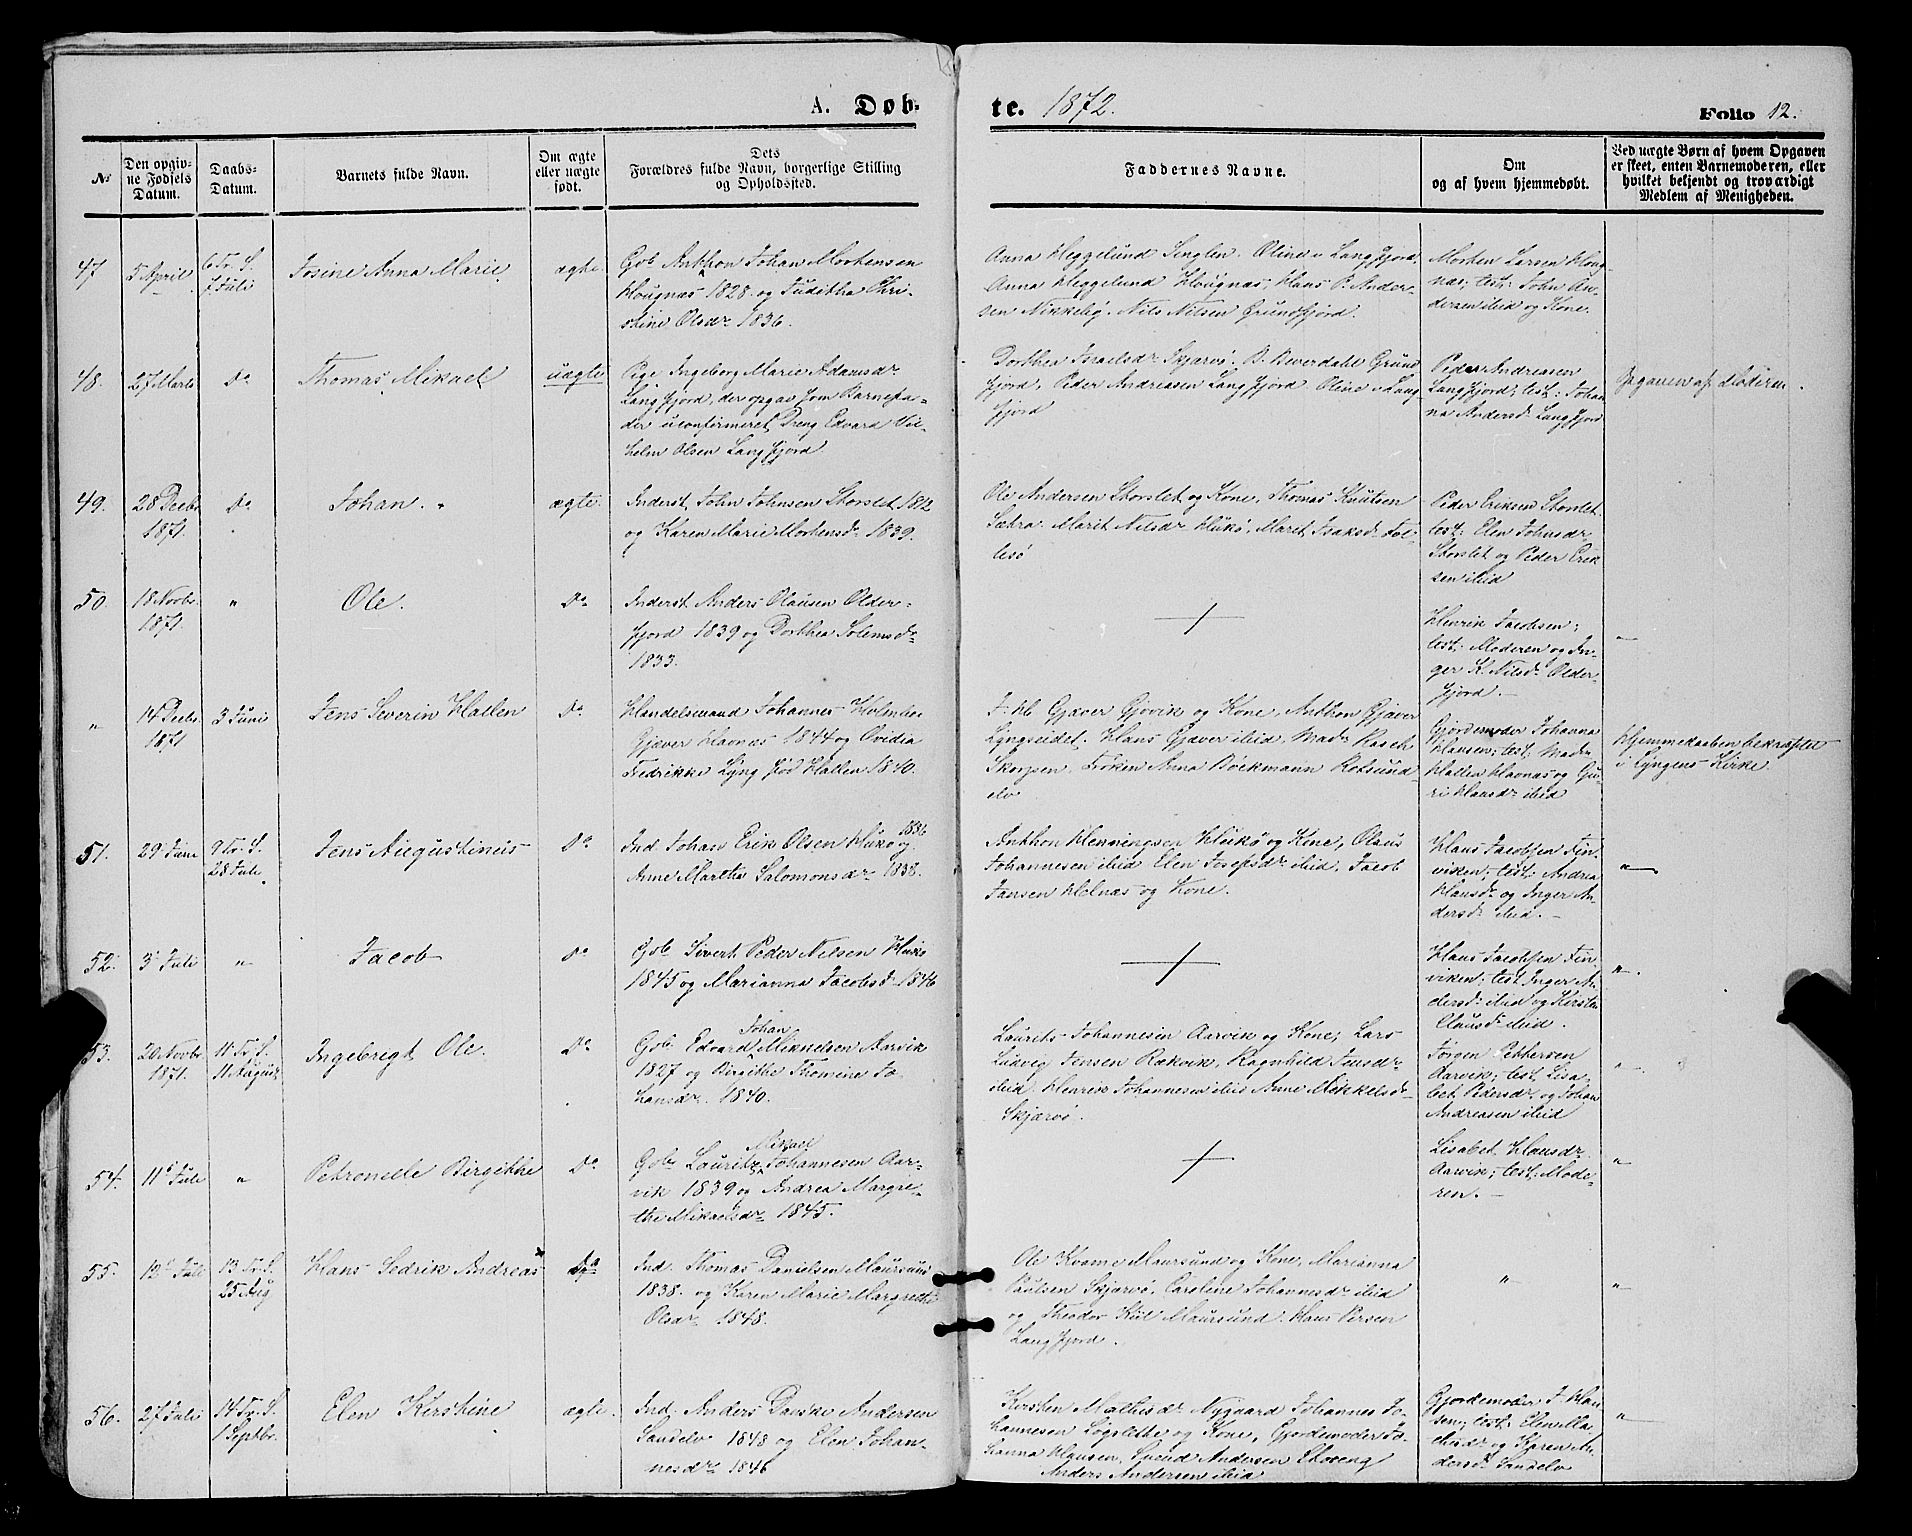 A. Døb-
te. 1872.
Folio 12.
№
Den opgiv-
ne Fødsels
Datum.
Daabs-
Datum.
Barnets fulde Navn.
Om ægte
eller uægte
født.
Dets
Forældres fulde Navn, borgerlige Stilling
og Opholdssted.
Faddernes Navne.
Om
og af hvem hjemmedøbt.
Ved uægte Børn af hvem Opgaven
er skeet, enten Barnemoderen, eller
hvilket bekjendt og troværdigt
Medlem af Menigheden.
47
5 April
6 Tr. S.
7 Juli
Josine Anna Marie
ægte
Gbr Anthon Johan Mortensen
Hougnæs 1828 og Juditha Chri-
stine Olsdr 1836.
Anna Heggelund Singlen. Oline Langfjord,
Anna Heggelund Hougnæs, Hans P. Ander-
sen Nikkeby. Nils Nilsen Grundfjord.
Morten Larsen Houg-
næs; test: John An-
dersen ibid og Kone.
48.
27 Marts
Do
Thomas Mikael
uægte
Pige Ingeborg Marie Adamsdr
Langfjord, der opgav som Barnefa-
der uconfirmeret Dreng Edvard Vil-
helm Olsen Langfjord
Dorthea Israelsdr Skjærvö. B. Beverdahl Grund
fjord, Peder Andreasen Langfjord Oline Lang
fjord
Peder Andreasen
Langfjord; test: Johan
na Andersdr Langfjord
Opgaven af Moderen.
49.
28 Decbr
1871.
Do
Johan.
ægte.
Inderst, John Johnsen Storslet 1842
og Karen Marie Mortensdr 1839.
Ole Andersen Storslet og Kone, Thomas Knutsen
Sætra. Marit Nilsdr Hukö, Maret Isaksdr Fol-
lesö
Peder Eriksen Storslet
test: Elen Johnsdr
Storslet og Peder Erik
sen ibid
50.
18 Novbr.
1871.
"
Ole.
Do
Inderst Anders Olausen Older-
fjord 1839 og Dorthea Solemsdr
1833.
Henrik Jacobsen;
test: Moderen og In-
ger K. Nilsdr Older-
fjord.
"
14 Decbr
1871
3 Juni
Jens Severin Hallen
Do
Handelsmand Johannes Holmboe
Gjæver Havnæs 1844 og Ovidia
Fredrikke Lyng fød Hallen 1840.
J. Hb Gjæver Gjövik og Kone, Anthon Gjæver
Lyngseidet. Hans Gjæver ibid, Madm Rasch
Skorpen. Fröken Anna Böckmann Rotsund-
elv
Gjordemoder Johanna
Hansen; test: Madm
Hallen Havnæs og Gu-
ri Hansdr ibid
Hjemmedaaben bekræftet
i Lyngens Kirke.
51.
29 Juni
9 Tr. S.
28 Juli
Jens Augustinus
Do
Ind Johan Erik Olsen Hukö 1836 og
Anne Martha Salomonsdr 1838.
Anthon Henningsen Hukö og Kone, Olaus
Johannesen ibid Elen Josefsdr ibid, Jacob
Jansen Helnæs og Kone.
Hans Jacobsen Fin-
viken; test: Andrea
Hansdr og Inger An-
dersdr ibid.
"
52.
3 Juli
"
Jacob
Do
Gbr Sivert Peder Nilsen Hukö
1845 og Marianna Jacobsdr 1846
Hans Jacobsen Fin-
viken; test Inger An-
dersdr ibid og Kirsten
Clausdr ibid.
"
53.
20 Novbr
1871.
11 Tr. S.
11 August
Ingebrigt Ole.
Do
Gbr Edvard Johan Mikkelsen Aarvik
1827 og Birgitte Thomine Jo-
hansdr 1840.
Laurits Johannesen Aarvik og Kone, Lars
Ludvig Jensen Rækvik, Ragnhild Jensdr
ibid. Henrik Johannesen ibid Anne Mikkelsdr
Skjærvö.
Jörgen Pettersen
Aarvik; test, Lisa-
bet Pedersdr og Johan
Andreasen ibid
"
54.
11 Juli
"
Petronelle Birgitte
Do
Gbr Lauritz Mikael Johannesen Aar-
vik 1839 og Andrea Margre-
the Mikaelsdr 1845.
Lisabet Hansdr
Aarvik; test: Mode-
ren.
"
55.
12 Juli
13 Tr. S.
25 Aug
Hans Sedrik Andreas
Do
Ind. Thomas Danielsen Maursund
1838. og Karen Marie Margrethe
Olsdr 1848.
Ole Kvame Maursund og Kone, Marianna
Paulsen Skjærvö, Caroline Johannesdr ibid
og Theodor Kiil Maursund. Hans Persen
Langfjord.
"
"
56.
27 Juli
14 Tr. S.
1 Septbr
Elen Kirstine
ægte.
Ind. Anders Danske Andersen
Sandelv 1848 og Elen Johan-
nesdr 1846
Kirsten Mathisdr Nygaard Johannes Jo-
hannesen Lögslethe og Kone, Gjordemoder Jo-
hanna Hansen, Svend Andersen Storeng
Anders Andersen ibid
Gjordemoder J. Han
sen; test: Elen
og Karen An-
dersdr Sandelv
"